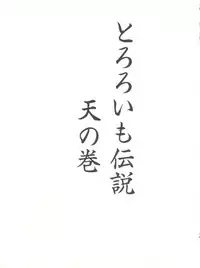 とろろいも伝説
天の巻